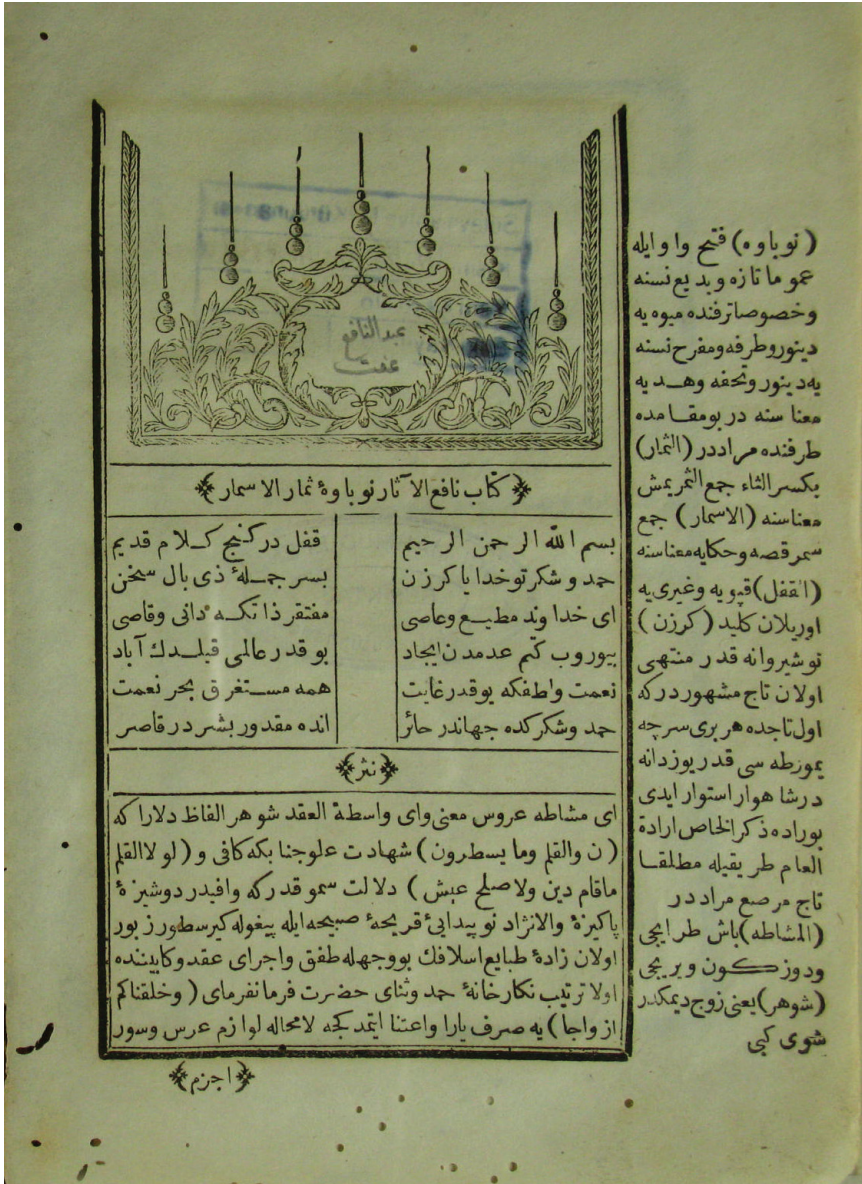 عبدالنافع
عفت
﴿كتاب نافع الآثار نوباوۀ ثمار الاسمار﴾
بسم الله الرحمن الرحيم
قفل در كنج كلام قديم
حمد و شكر تو خدايا كرزن
بسر جملۀ ذى بال سخن
اى خداوند مطيع وعاصى
مفتقر ذاتكه دانى وقاصى
بيوروب كتم عدمدن ايجاد
بو قدر عالمى قيلدك آباد
نعمت واطفكه يوقدر غايت
همه مستغرق بحر نعمت
حمد وشكركده جهاندر حائر
انده مقدور بشر در قاصر
﴿نثر﴾
اى مشاطه عروس معنى واى واسطة العقد شوهر الفاظ دلارا كه
(ن والقلم وما يسطرون) شهادت علوجنابكه كافى و (لولا القلم
ماقام دين ولا صلح عيش) دلالت سمو قدركه وافيدر دوشيزۀ
پاكيزۀ والانژاد نو پيدايئ قريحۀ صبيحه ايله پيغوله كير سطور زبور
اولان زادۀ طبايع اسلافك بووجهله طفق واجراى عقد وكابيننده
اولا ترتيب نكارخانۀ حمد وثناى حضرت فرمانفرماى (وخلقناكم
ازواجا) يه صرف يارا واعتنا ايتمدكجه لامحاله لوازم عرس وسور
﴿اجزم﴾
(نوباوه) فتح واو ايله
عموما تازه وبديع نسنه
وخصوصا ترفنده ميوه يه
دينور وطرفه ومفرح نسنه
يه دينور وتحفه وهديه
معناسنه در بومقامده
طرفنده مراددر (الثمار)
بكسر الثاء جمع الثمر يمش
معناسنه (الاسمار) جمع
سمر قصه وحكايه معناسنه
(القفل) قپويه وغيرى يه
اوريلان كليد (كرزن)
نوشيروانه قدر منتهى
اولان تاج مشهوردركه
اول تاجده هربرى سرچه
يمورطه سى قدر يوز دانه
درشاهوار استوار ايدى
بوراده ذكر الخاص ارادة
العام طريقيله مطلقا
تاج مرصع مراددر
(المشاطه) باش طرايجى
ودوزكون ويريجى
(شوهر) يعنى زوج ديمكدر
شوى كبى